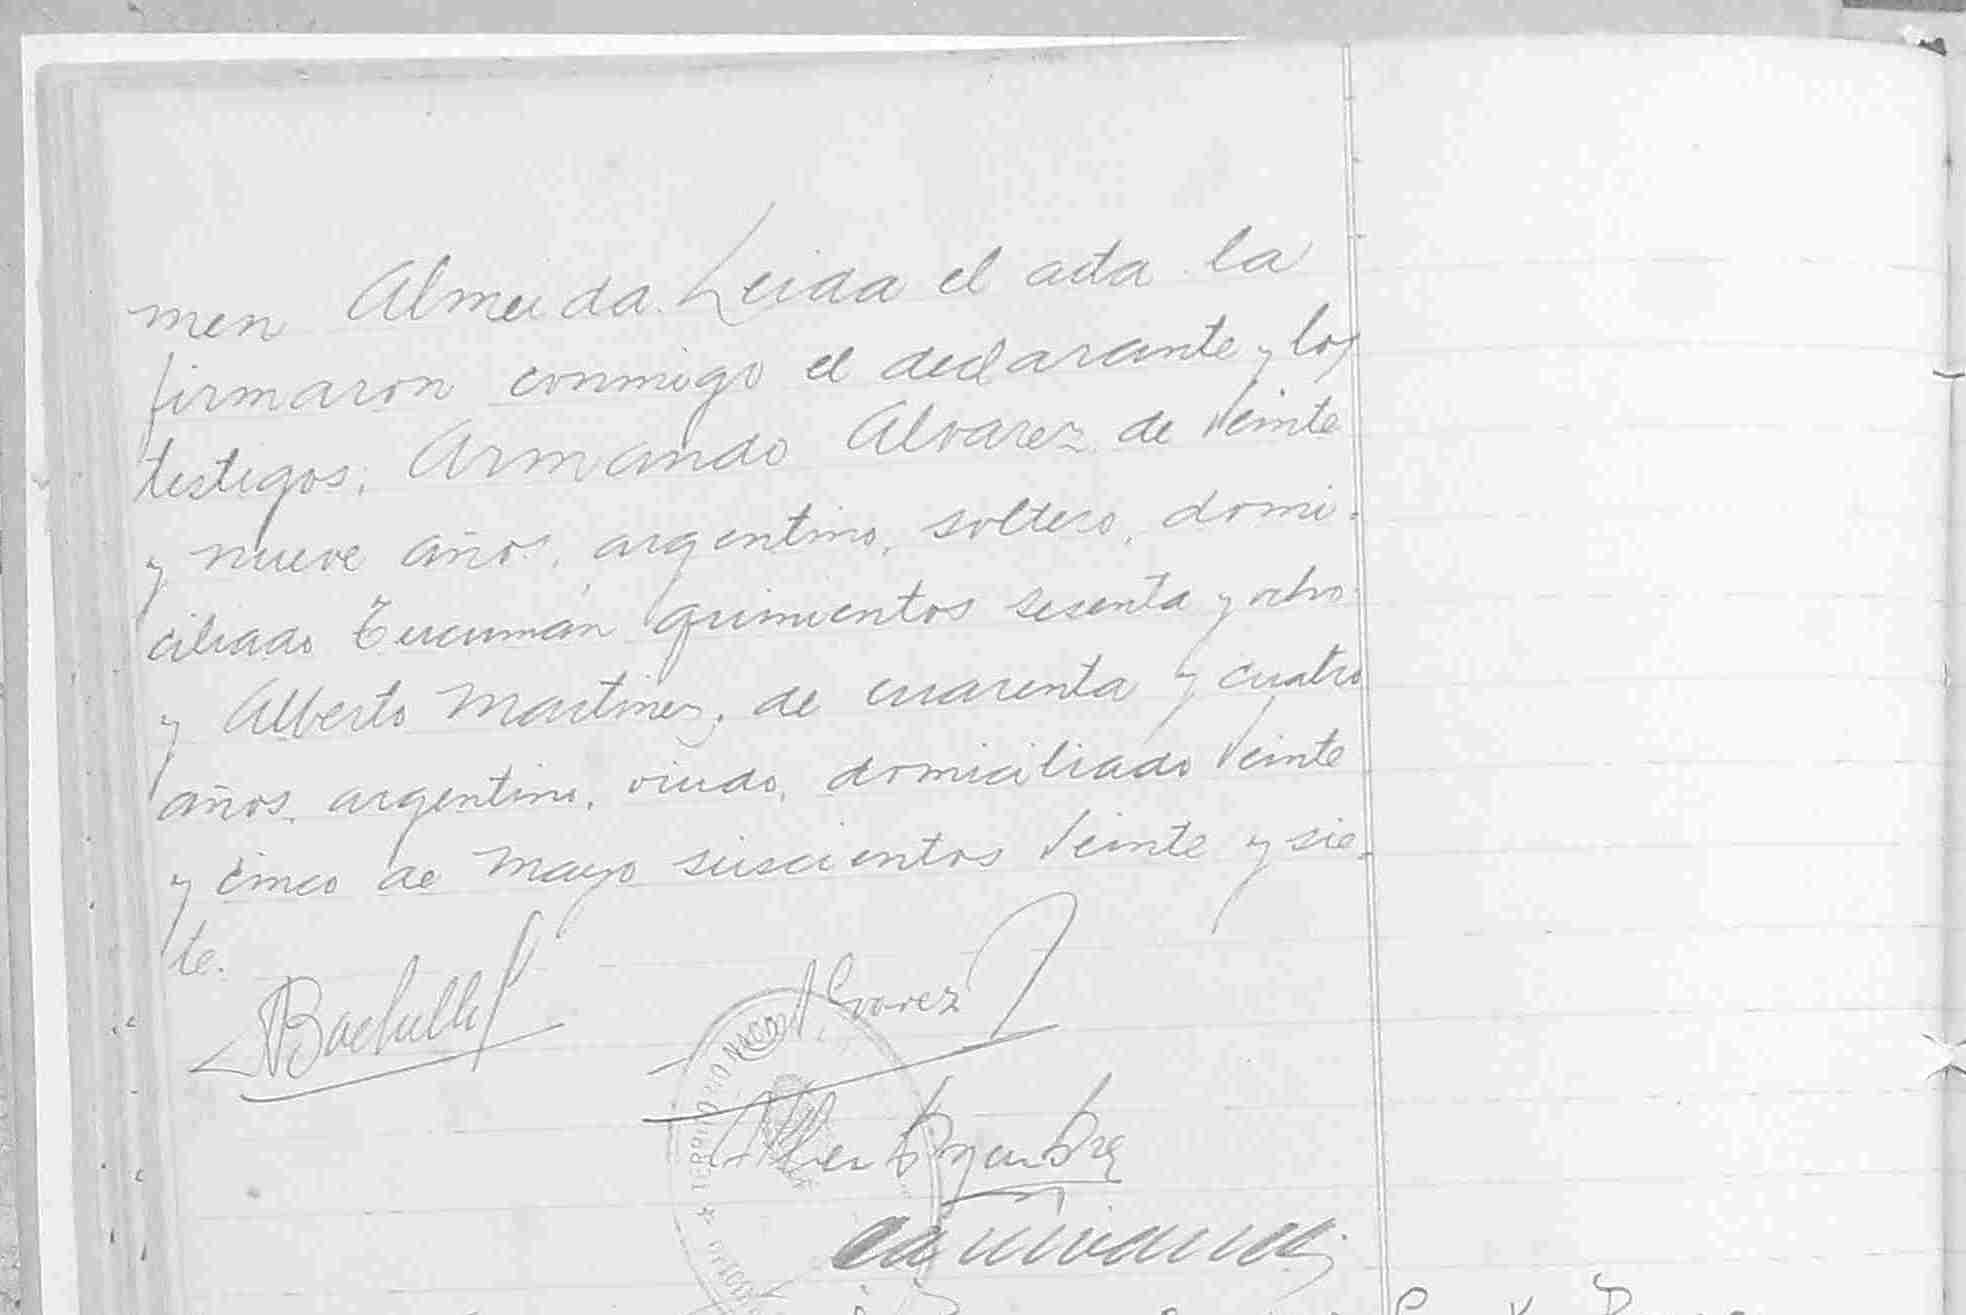 men Almeida. Leida el acta la
firmaron conmigo el declarante y los
testigos, Armando Alvarez de veinte
y nueve años, argentino, soltero, domi-
ciliado Tucumán quinientos sesenta y ocho
y Alberto Martinez, de cuarenta y cuatro
años, argentino, viudo, domiciliado Veinte
y cinco de Mayo seiscientos veinte y sie-
te.
Alvarez